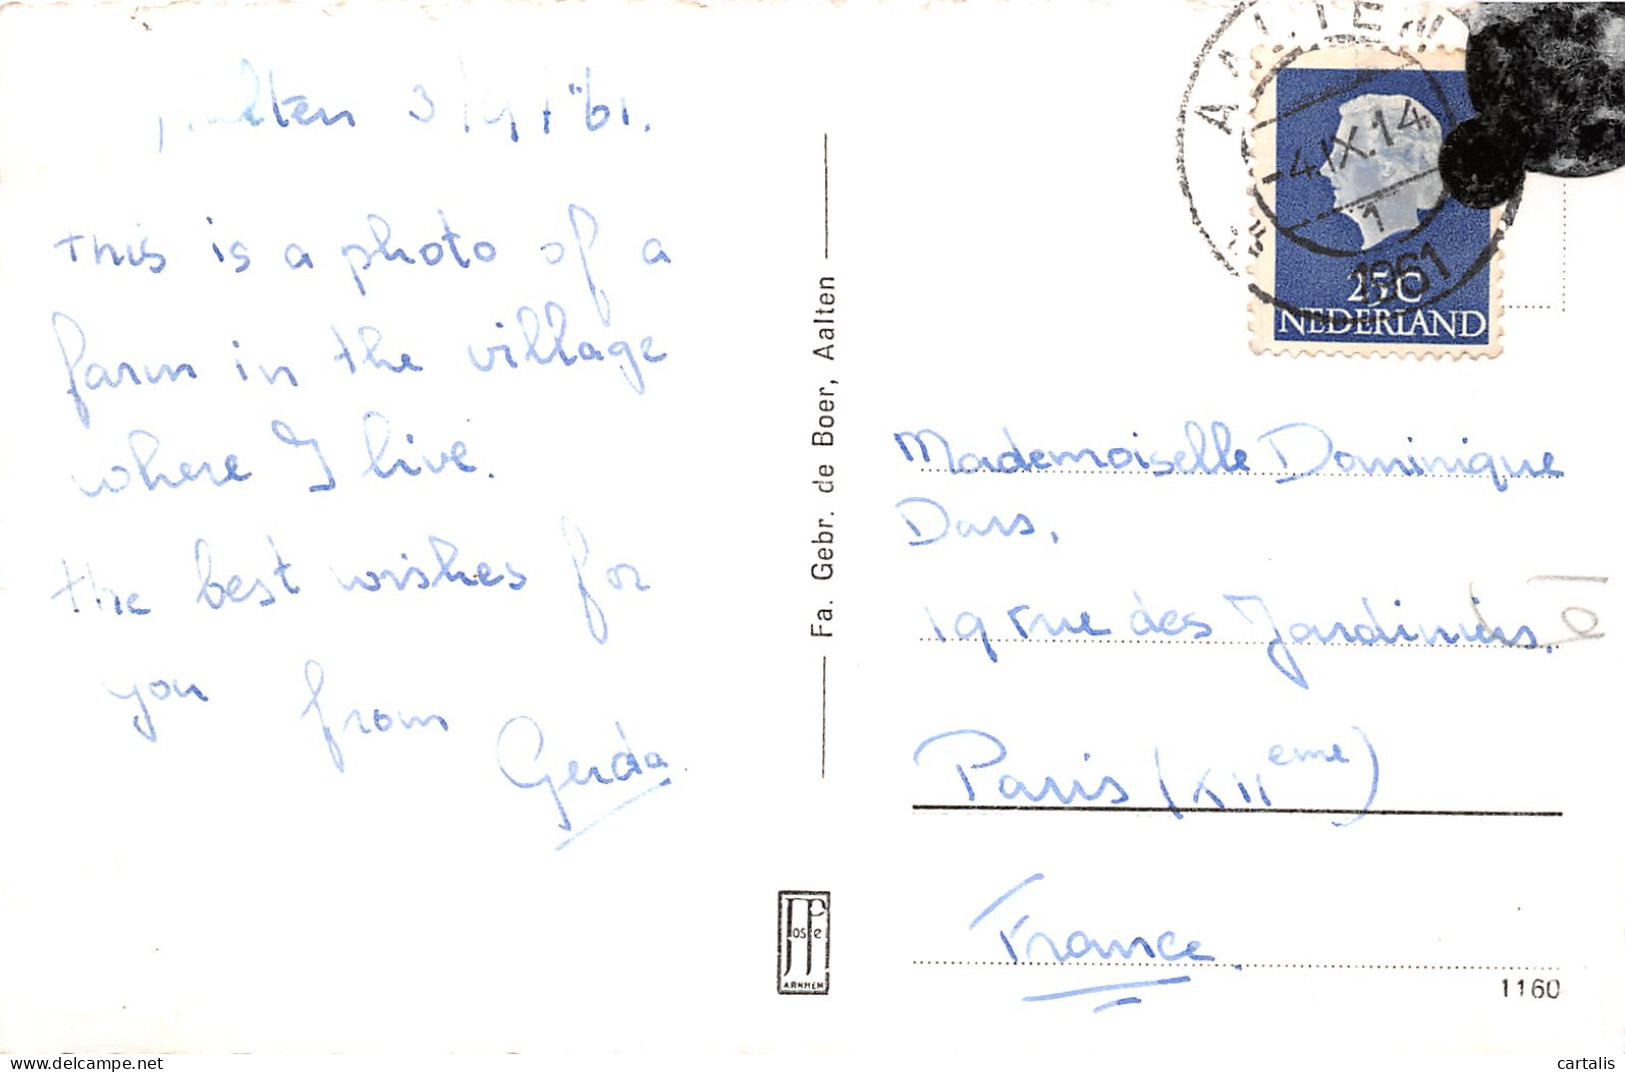 Aalten 3/9/'61.
This is a photo of a
farm in the village
where I live.
the best wishes for
you from
Gerda.
Fa. Gebr. de Boer, Aalten
JosPé
ARNHEM
AALTEN
-4.IX.14
1
1961
25C
NEDERLAND
Mademoiselle Dominique
Dars,
19 rue des Jardiniers,
Paris (XIIeme)
France.
1160
cartalis